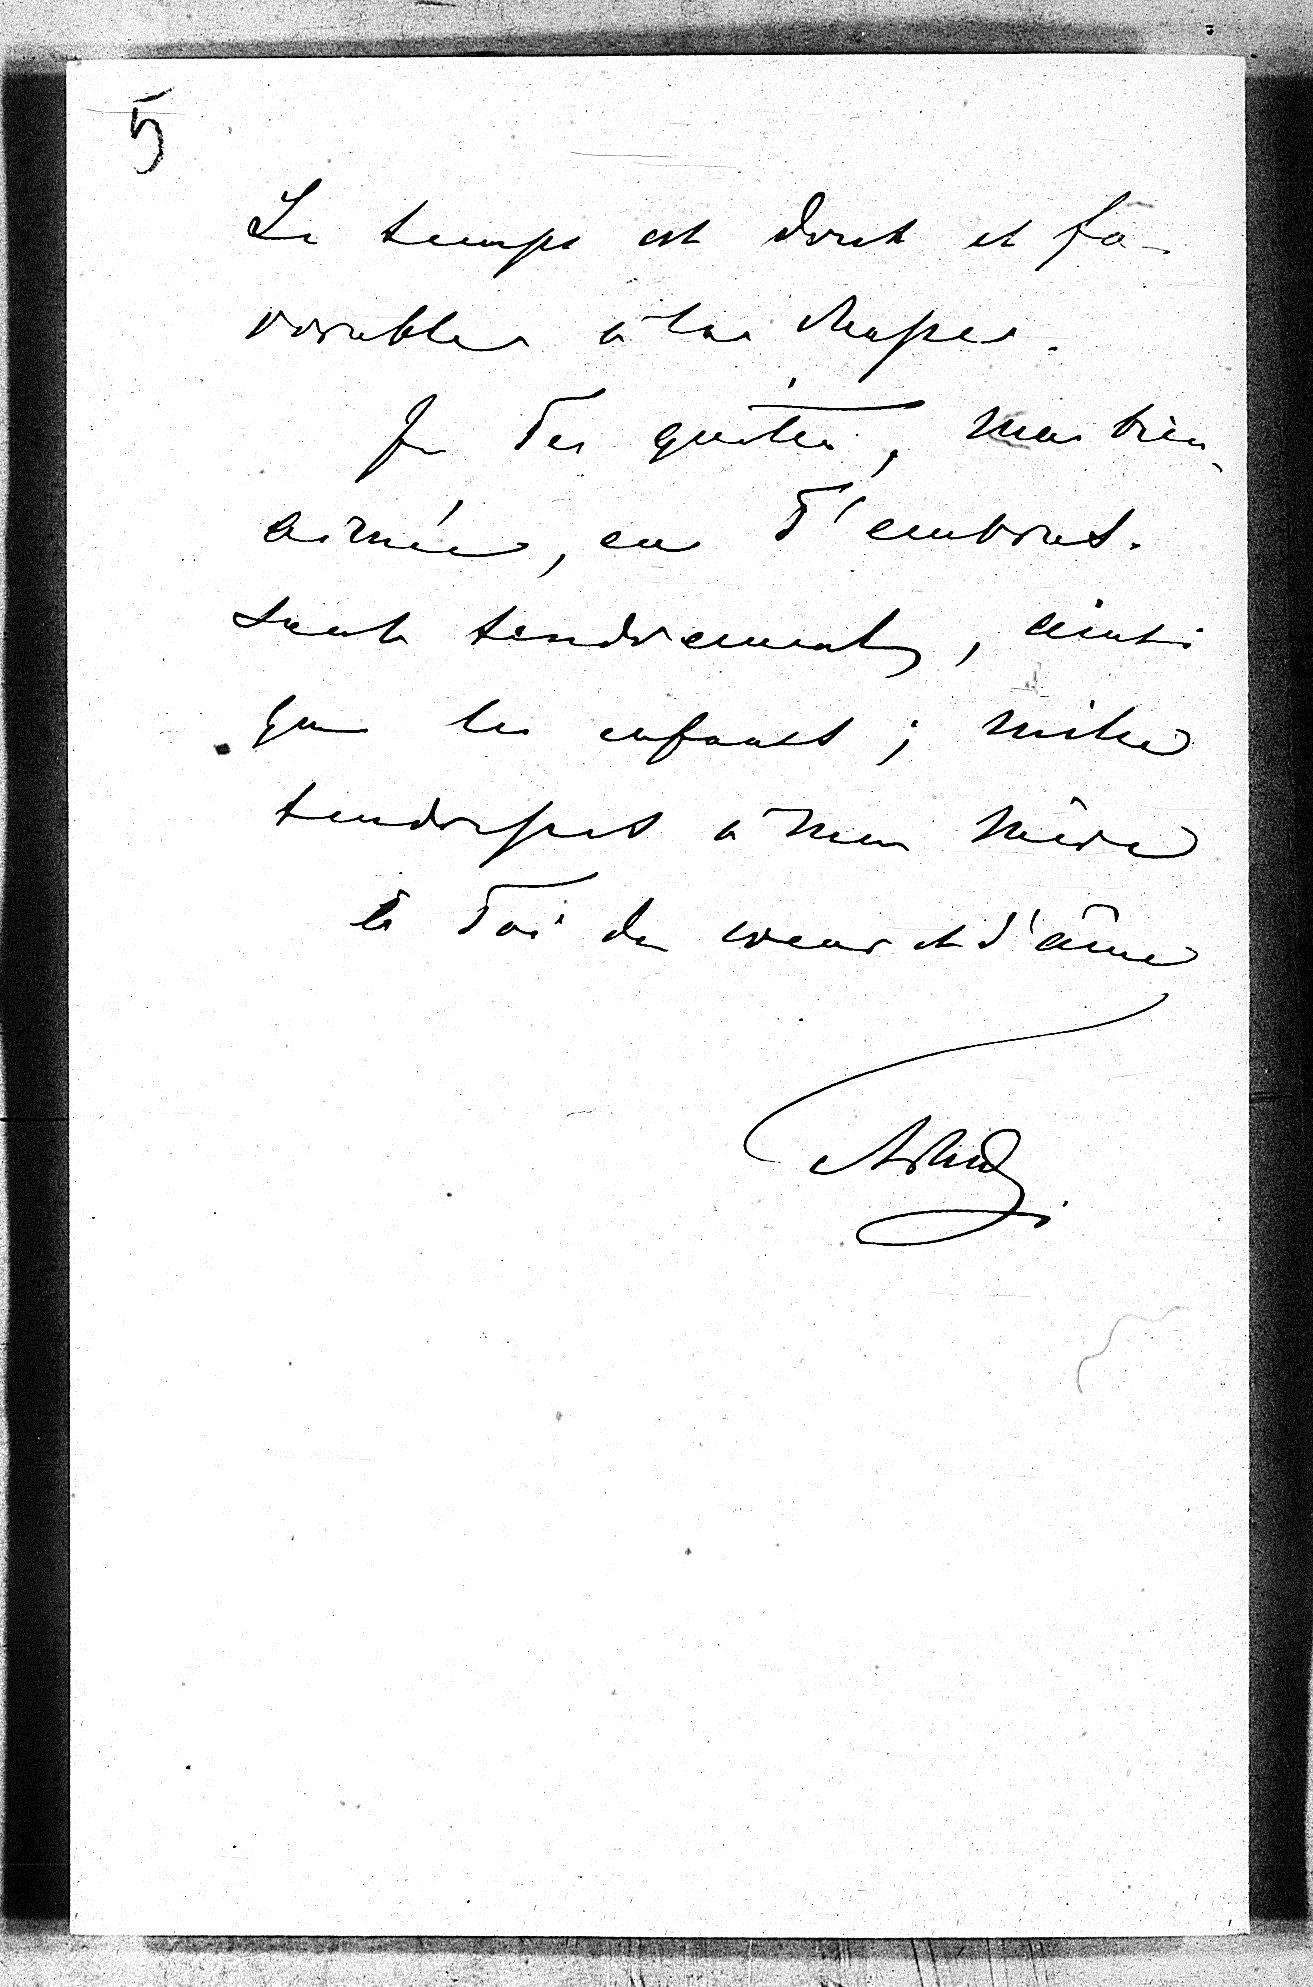 5
Le temps est doux et fa-
vorable à la chasse.
Je Te quitte, ma bien
aimée, en T'embras-
sant tendrement, ainsi
que les enfants ; mille
tendresses à ma mère
à Toi de coeur et d'âme